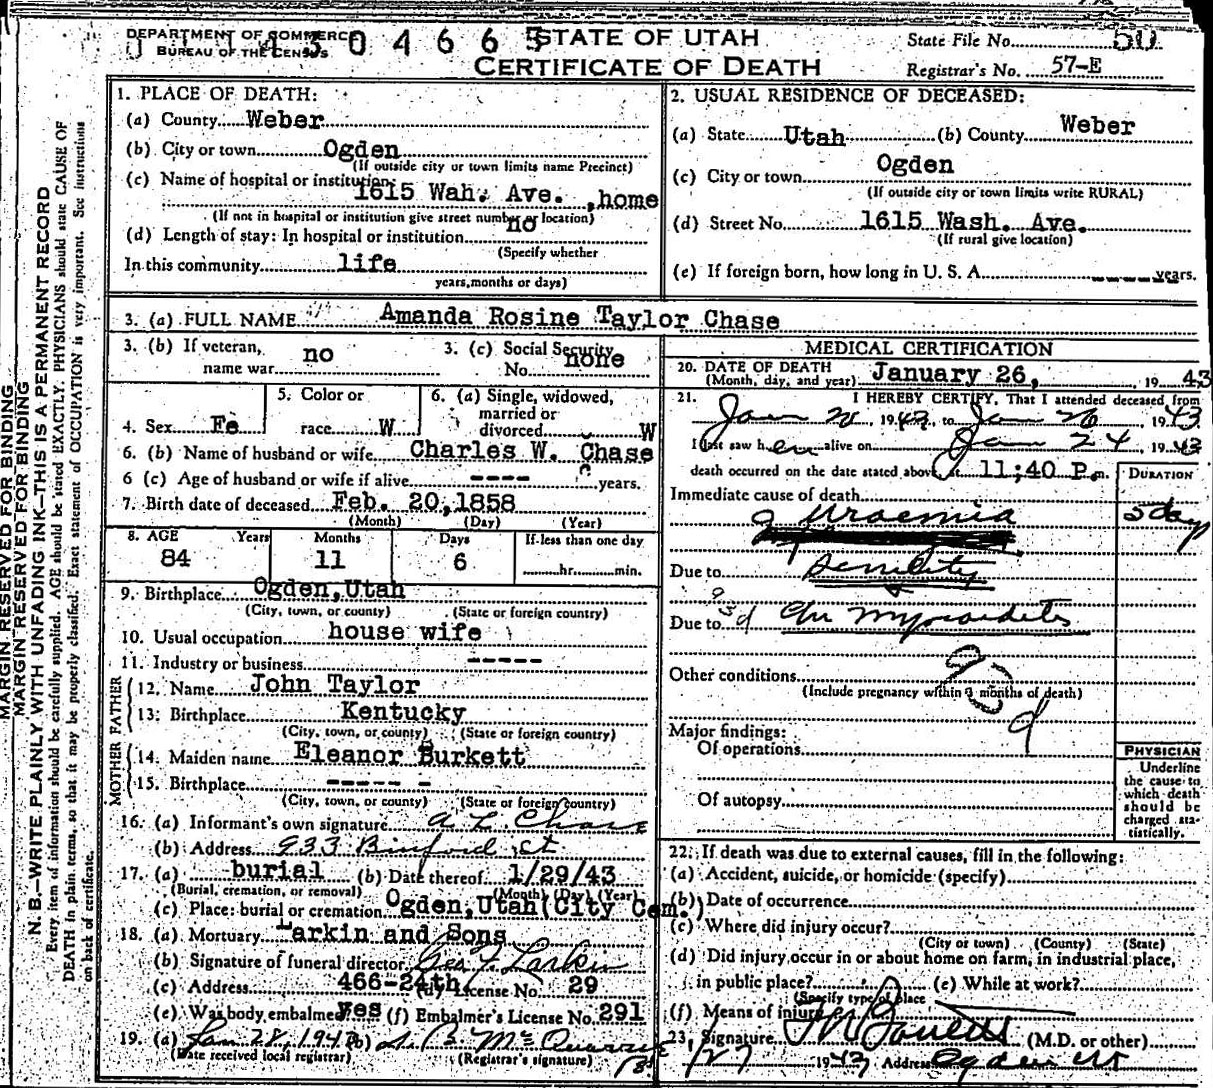 DEPARTMENT OF COMMERCE
BUREAU OF THE CENSUS
4304665
STATE OF UTAH
CERTIFICATE OF DEATH
State File No. 50
Registrar's No. 57-E
MARGIN RESERVED FOR BINDING
MARGIN RESERVED FOR BINDING
N. B.—WRITE PLAINLY WITH UNFADING INK—THIS IS A PERMANENT RECORD
Every item of information should be carefully supplied. AGE should be stated EXACTLY. PHYSICIANS should state CAUSE OF
DEATH in plain terms, so that it may be properly classified. Exact statement of OCCUPATION is very important. See instructions
on back of certificate.
1. PLACE OF DEATH:
(a) County Weber
(b) City or town Ogden
(If outside city or town limits name Precinct)
(c) Name of hospital or institution:
1615 Wah. Ave. ,home
(If not in hospital or institution give street number or location)
(d) Length of stay: In hospital or institution no
(Specify whether
In this community life
years, months or days)
2. USUAL RESIDENCE OF DECEASED:
(a) State Utah (b) County Weber
(c) City or town Ogden
(If outside city or town limits write RURAL)
(d) Street No. 1615 Wash. Ave.
(If rural give location)
(e) If foreign born, how long in U. S. A. ---- years.
3. (a) FULL NAME Amanda Rosine Taylor Chase
3. (b) If veteran, name war no
3. (c) Social Security No. none
4. Sex Fe
5. Color or race W
6. (a) Single, widowed, married or divorced W
6. (b) Name of husband or wife Charles W. Chase
6 (c) Age of husband or wife if alive ---- years.
7. Birth date of deceased Feb. 20,1858
(Month) (Day) (Year)
8. AGE Years Months Days If less than one day
84 11 6 hr. min.
9. Birthplace Ogden,Utah
(City, town, or county) (State or foreign country)
10. Usual occupation house wife
11. Industry or business -----
FATHER
12. Name John Taylor
13. Birthplace Kentucky
(City, town, or county) (State or foreign country)
MOTHER
14. Maiden name Eleanor Burkett
15. Birthplace ------
(City, town, or county) (State or foreign country)
16. (a) Informant's own signature A L Chase
(b) Address 933 Binford St
17. (a) burial (b) Date thereof 1/29/43
(Burial, cremation, or removal) (Month) (Day) (Year)
(c) Place: burial or cremation Ogden,Utah(City Cem.)
18. (a) Mortuary Larkin and Sons
(b) Signature of funeral director Geo F Larkin
(c) Address 466-24th (d) License No. 29
(e) Was body embalmed yes (f) Embalmer's License No. 291
19. (a) Jan 28, 1943 (b) B. McQuarrie
(Date received local registrar) (Registrar's signature)
MEDICAL CERTIFICATION
20. DATE OF DEATH
(Month, day, and year) January 26, , 19 43
21. I HEREBY CERTIFY, That I attended deceased from
Jan 20, 1943, to Jan 26 1943
I last saw her alive on Jan 24, 1943
death occurred on the date stated above at 11;40 P.m.
DURATION
Immediate cause of death
Uraemia 5 days
Due to Senility
Due to Chr Myocarditis
93d
Other conditions
(Include pregnancy within 3 months of death)
Major findings:
Of operations
Of autopsy
PHYSICIAN
Underline
the cause to
which death
should be
charged sta-
tistically.
22. If death was due to external causes, fill in the following:
(a) Accident, suicide, or homicide (specify)
(b) Date of occurrence
(c) Where did injury occur?
(City or town) (County) (State)
(d) Did injury occur in or about home on farm, in industrial place,
in public place? (e) While at work?
(Specify type of place
(f) Means of injury
23. Signature (M.D. or other)
1/27 1943 Address Ogden Ut